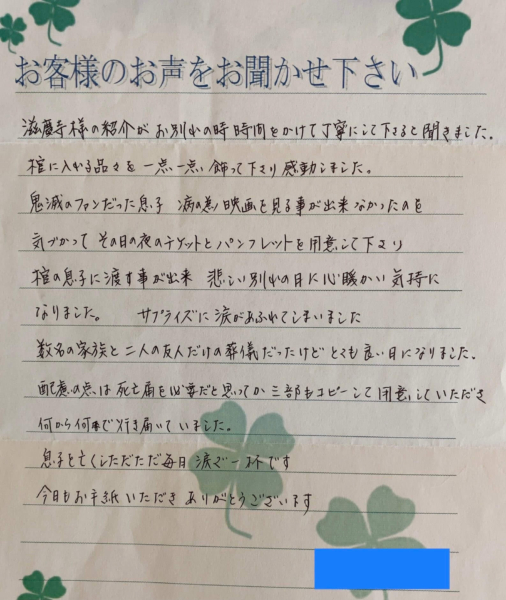 お客様のお声をお聞かせ下さい
滋慶寺様の紹介がお別れの時時間をかけて丁寧にして下さると聞きました。
棺に入れる品々を一点一点飾って下さり感動しました。
鬼滅のファンだった息子 病の為映画を見る事が出来なかったのを
気づかって その日の夜のチケットとパンフレットを用意して下さり
棺の息子に渡す事が出来 悲しい別れの日に心暖かい気持に
なりました。 サプライズに涙があふれてしまいました
数名の家族と二人の友人だけの葬儀だったけど とても良い日になりました。
配慮の点は死亡届を必要だと思ってか 三部もコピーして用意していただき
何から何まで行き届いていました。
息子を亡くしただただ毎日涙で一杯です
今日もお手紙いただき ありがとうございます